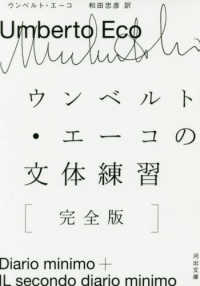 ウンベルト・エーコ 和田忠彦 訳
Umberto Eco
ウンベルト
・エーコの
文体練習
[完全版]
Diario minimo+
IL secondo diario minimo
河出文庫